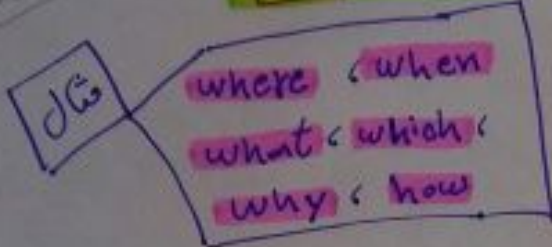 مثال
where ، when
what ، which ،
why ، how